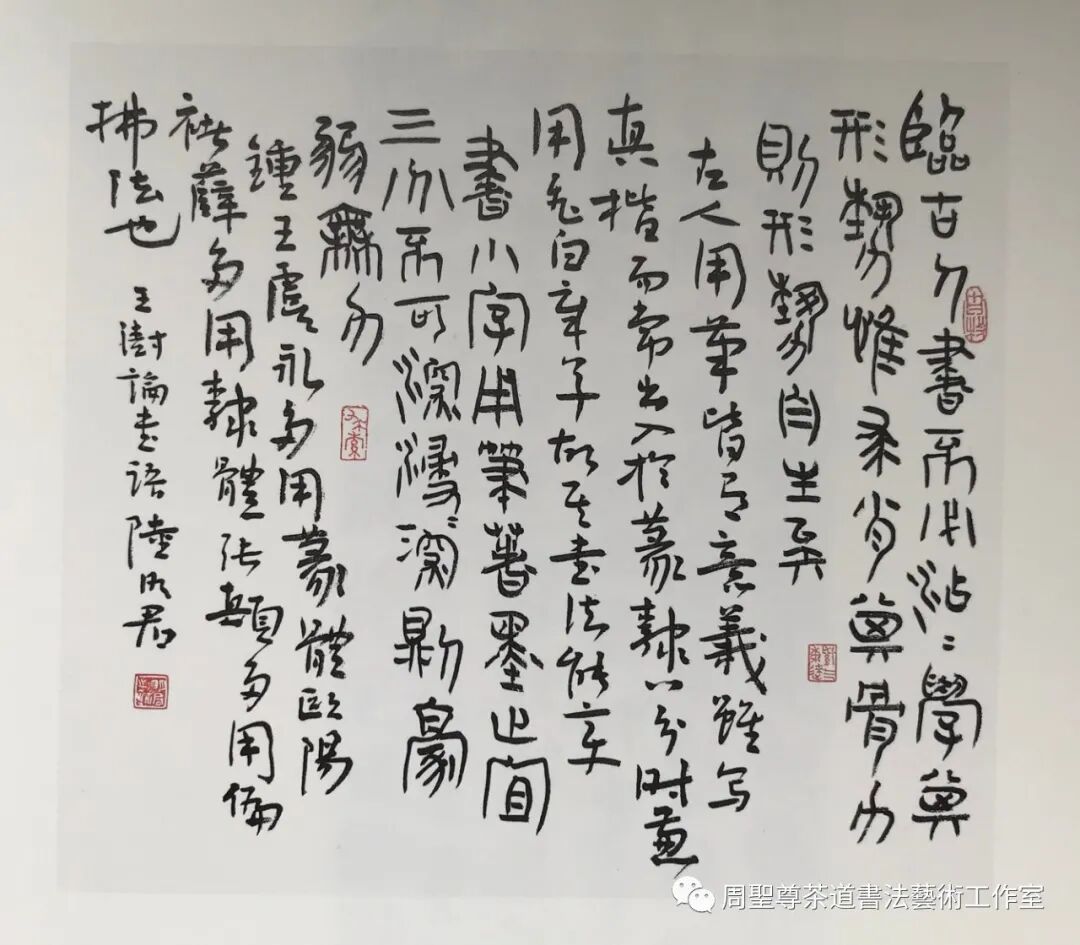 臨古人書不必沾〻學其
形勢惟求肖其骨力
則形勢自生矣
古人用筆皆有意義雖寫
真楷而常出入於篆隸八分時兼
用飛白章草故其書法能
書小字用筆著墨止宜
三分不可深浸〻深則豪
弱無力
鍾王虞永多用篆體歐陽
褚薛多用隸體張顛多用偏
拂法也 王澍論書語 陸明君
周聖尊茶道書法藝術工作室